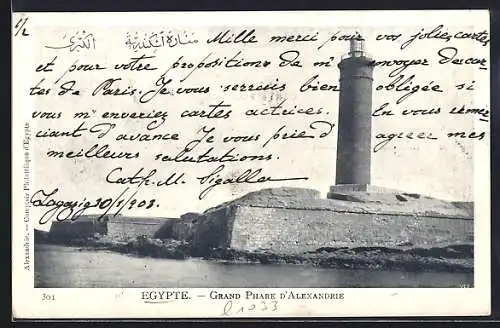 منارة اسكندرية الكبرى
Mille merci pour vos jolies cartes
et pour votre propositions de m'envoyer des car-
tes de Paris. Je vous serais bien obligée si
vous m'enveriez cartes actrices. En vous remer-
ciant d'avance Je vous prie d'agreer mes
meilleurs salutations.
Cath. M. Sigalla
Zagazig 30/1/903
Alexandrie. - Comptoir Philatélique d'Egypte
301
EGYPTE. - GRAND PHARE D'ALEXANDRIE